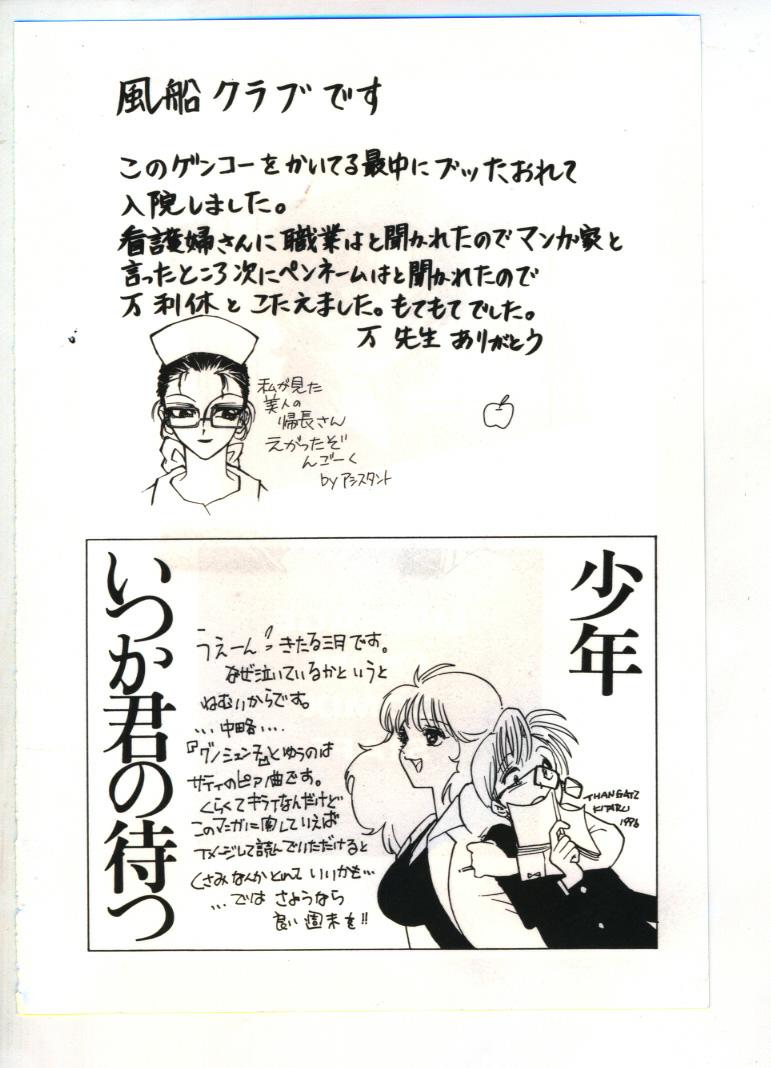 風船クラブです
このゲンコーをかいてる最中にブッたおれて
入院しました。
看護婦さんに職業はと聞かれたのでマンガ家と
言ったところ次にペンネームはと聞かれたので
万利休とこたえました。もてもてでした。
万先生ありがとう
私が見た
美人の
帰長さん
えがったぞ
んごーく
byアシスタント
少年
いつか君の待つ
うえーん!!きたる三月です。
なぜ泣いているかというと
ねむいからです。
…中略…
『グノシェンヌ』とゆうのは
サティのピアノ曲です。
くらくてキライなんだけど
このマンガに関していえば
イメージして読んでいただけると
くさみなんかとれて いいかも…
…では さようなら
良い週末を!!
KITARU
1996